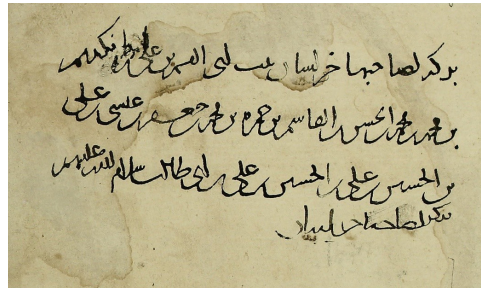 بركة لصاحبها خراسان بنت ابى القسم بن على بن
بن محمد بن محمد بن الحسن بن القاسم بن حمزة بن محمد بن جعفر بن عيسى بن على
بن الحسين بن على بن الحسين بن على بن ابى طالب سلام الله عليهم
بركة لصاحبها